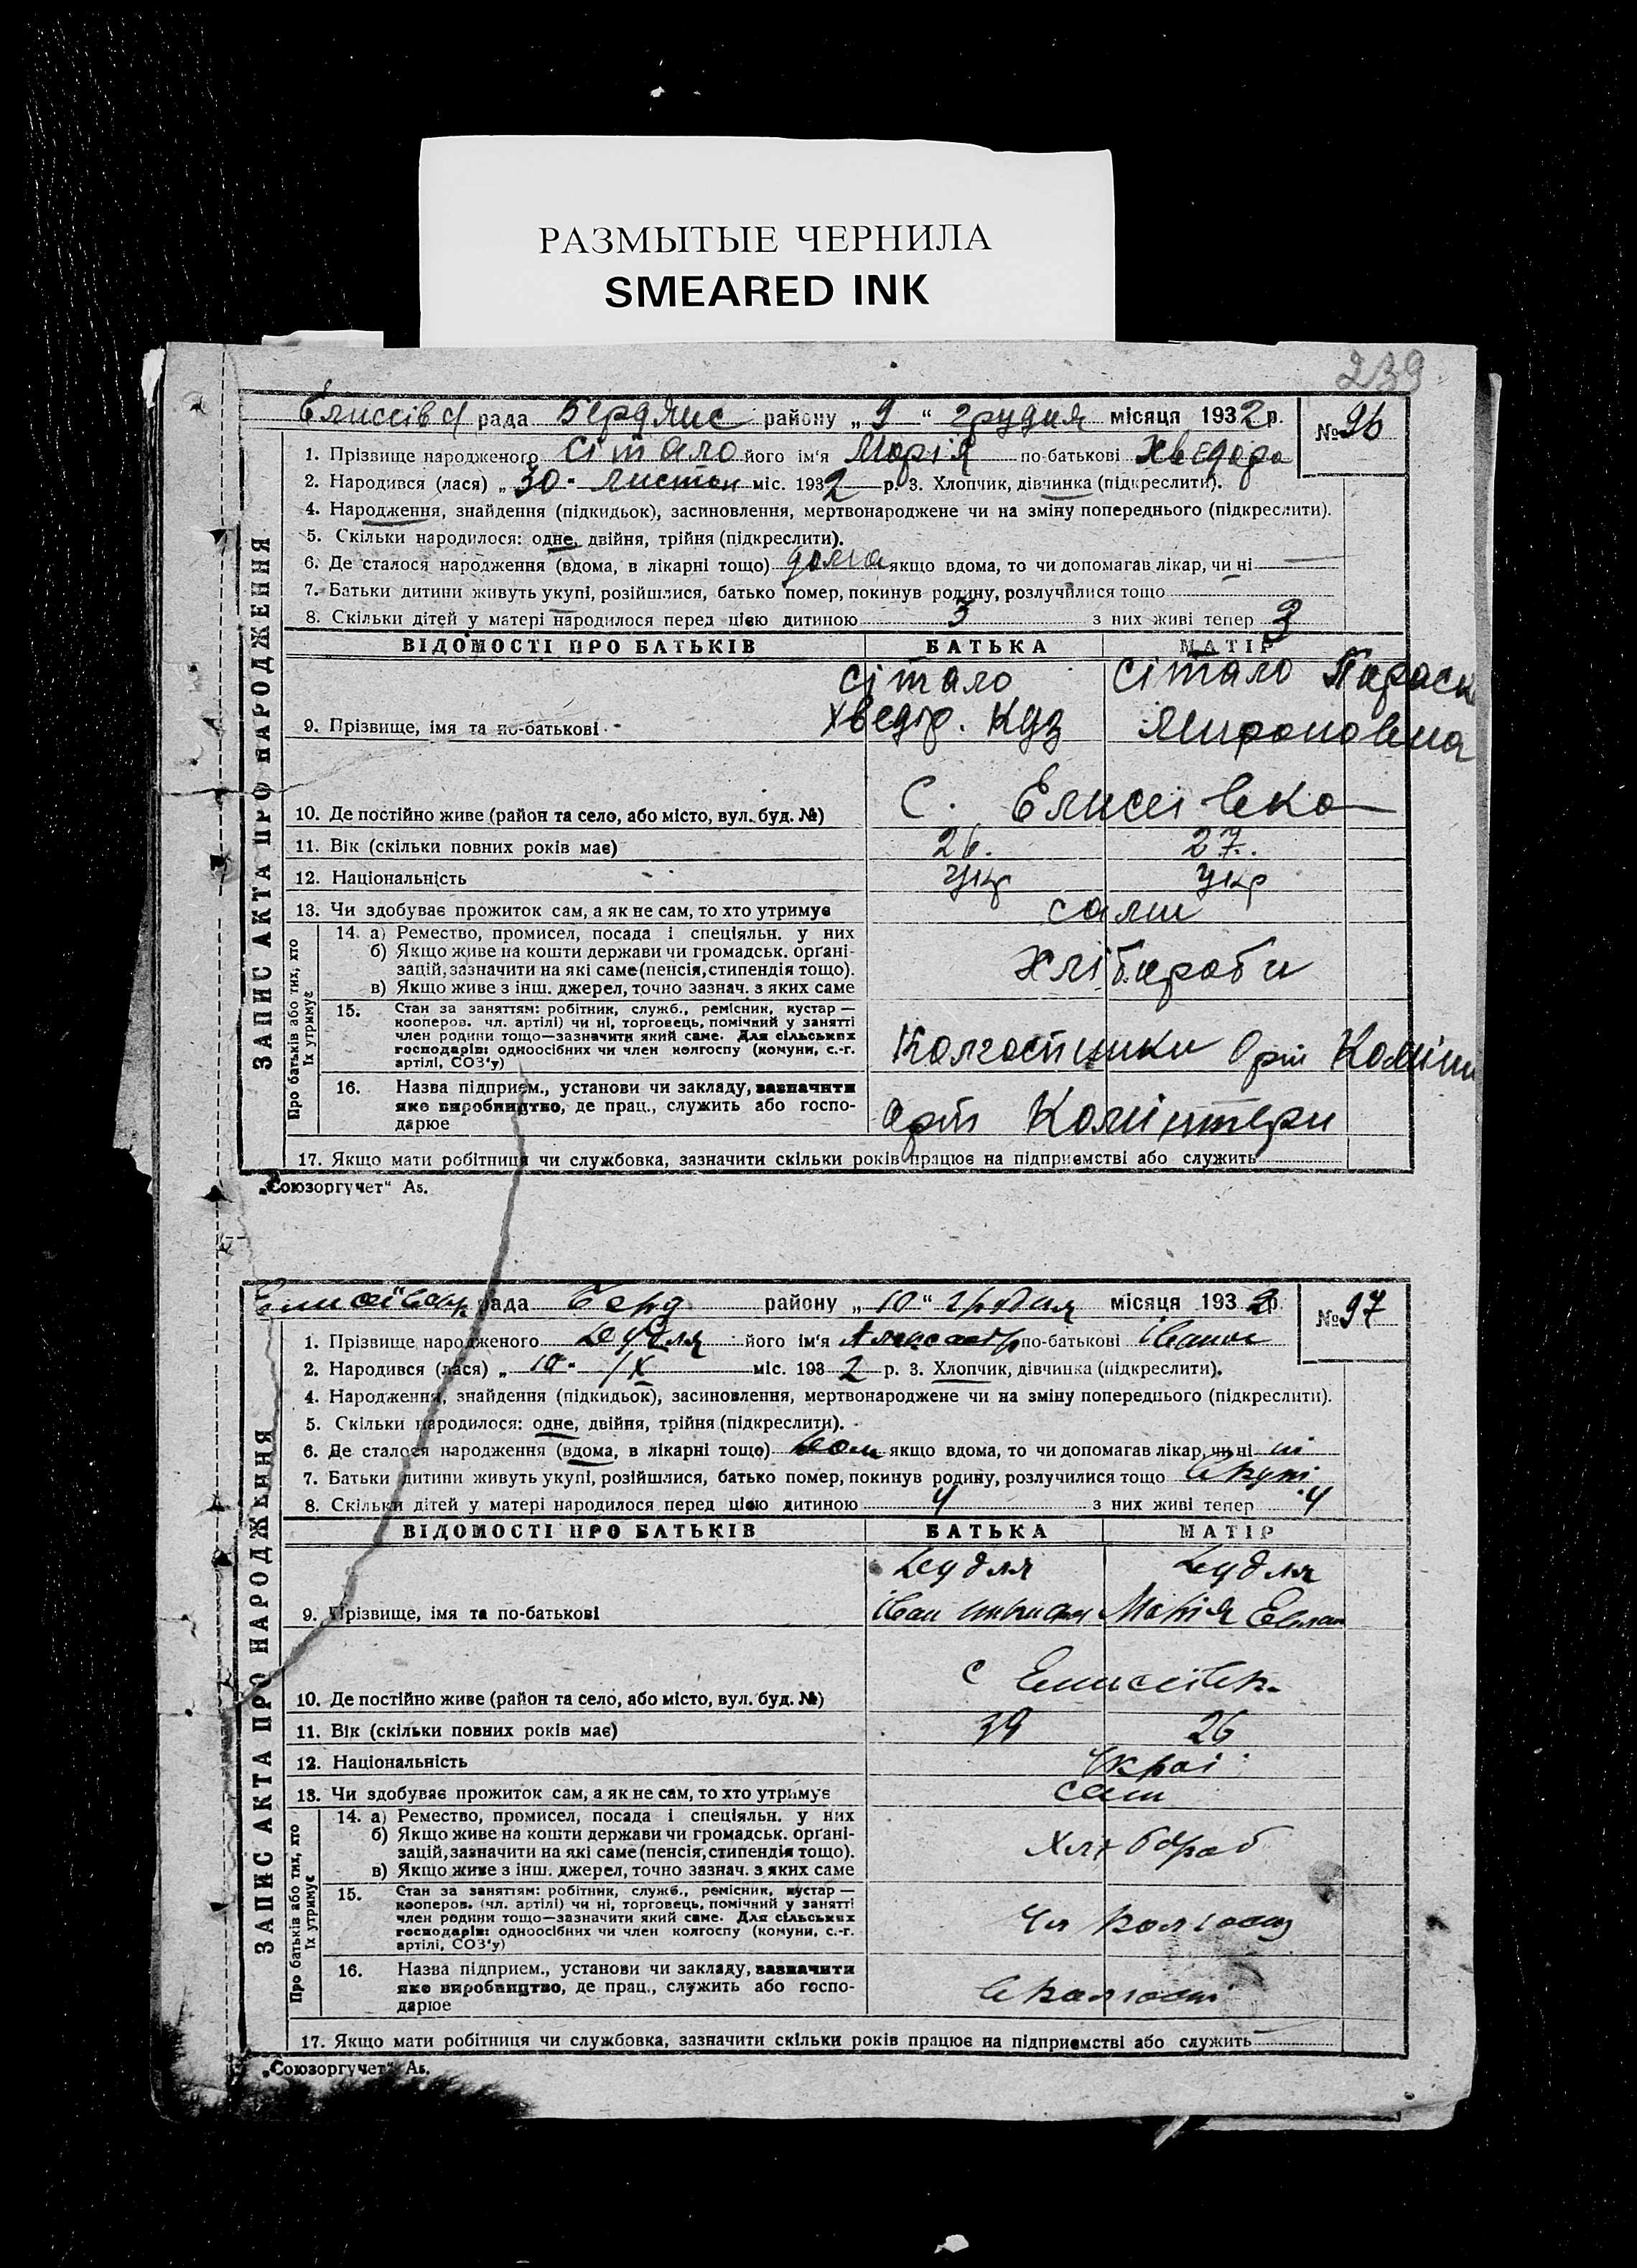 РАЗМЫТЫЕ ЧЕРНИЛА
SMEARED INK
239
рада район у „ 9 “ грудня місяця 1932 р. № 96
1. Прізвище народженого Сітало його ім'я Марія по-батькові Хведора
2. Народився (лася) „ 30 “ листоп міс. 1932 р. 3. Хлопчик, дівчинка (підкреслити).
4. Народження, знайдення (підкидьок), засиновлення, мертвонароджене чи на зміну попереднього (підкреслити).
5. Скільки народилося: одне, двійня, трійня (підкреслити).
6. Де сталося народження (вдома, в лікарні тощо) дома якщо вдома, то чи допомагав лікар, чи ні —
7. Батьки дитини живуть укупі, розійшлися, батько помер, покинув родину, розлучилися тощо
8. Скільки дітей у матері народилося перед цією дитиною 3 з них живі тепер 3
ВІДОМОСТІ ПРО БАТЬКІВ БАТЬКА МАТІР
Сітало Сітало Параск
9. Прізвище, імя та по-батькові Хведір. Куз Мироновна
10. Де постійно живе (район та село, або місто, вул. буд. №) С. Елисеівка
11. Вік (скільки повних років має) 26. 27.
12. Національність Укр Укр
13. Чи здобуває прожиток сам, а як не сам, то хто утримує сами
ЗАПИС АКТА ПРО НАРОДЖЕННЯ
Про батьків або тих, хто
їх утримує
14. а) Ремество, промисел, посада і спеціяльн. у них
б) Якщо живе на кошти держави чи громадськ. орґані-
зацій, зазначити на які саме (пенсія, стипендія тощо).
в) Якщо живе з інш. джерел, точно зазнач. з яких саме
Хлібароби
15. Стан за заняттям: робітник, служб., ремісник, кустар —
кооперов. чл. артілі) чи ні, торговець, помічний у занятті
член родини тощо—зазначити який саме. Для сільських
господарів: одноосібних чи член колгоспу (комуни, с.-г.
артілі, СОЗ'у)
Колгоспники Арт
16. Назва підприєм., установи чи закладу, зазначити
яке виробництво, де прац., служить або госпо-
дарює
Арт Комінтерн
17. Якщо мати робітниця чи службовка, зазначити скільки років працює на підприємстві або служить
„Союзоргучет“ А5.
рада Берд району „ 10 “ місяця 1932 р. № 97
1. Прізвище народженого його ім'я по-батькові Іванов
2. Народився (лася) „ 10 “ міс. 1932 р. 3. Хлопчик, дівчинка (підкреслити).
4. Народження, знайдення (підкидьок), засиновлення, мертвонароджене чи на зміну попереднього (підкреслити).
5. Скільки народилося: одне, двійня, трійня (підкреслити).
6. Де сталося народження (вдома, в лікарні тощо) якщо вдома, то чи допомагав лікар, чи ні ні
7. Батьки дитини живуть укупі, розійшлися, батько помер, покинув родину, розлучилися тощо вкупі
8. Скільки дітей у матері народилося перед цією дитиною 4 з них живі тепер 4
ВІДОМОСТІ ПРО БАТЬКІВ БАТЬКА МАТІР
9. Прізвище, імя та по-батькові Іван Марія
10. Де постійно живе (район та село, або місто, вул. буд. №) с
11. Вік (скільки повних років має) 39 26
12. Національність Украі
13. Чи здобуває прожиток сам, а як не сам, то хто утримує сами
ЗАПИС АКТА ПРО НАРОДЖЕННЯ
Про батьків або тих, хто
їх утримує
14. а) Ремество, промисел, посада і спеціяльн. у них
б) Якщо живе на кошти держави чи громадськ. орґані-
зацій, зазначити на які саме (пенсія, стипендія тощо).
в) Якщо живе з інш. джерел, точно зазнач. з яких саме
15. Стан за заняттям: робітник, служб., ремісник, кустар —
кооперов. (чл. артілі) чи ні, торговець, помічний у занятті
член родини тощо—зазначити який саме. Для сільських
господарів: одноосібних чи член колгоспу (комуни, с.-г.
артілі, СОЗ'у)
Чл колгоспу
16. Назва підприєм., установи чи закладу, зазначити
яке виробництво, де прац., служить або госпо-
дарює
в колгоспі
17. Якщо мати робітниця чи службовка, зазначити скільки років працює на підприємстві або служить
„Союзоргучет“ А5.